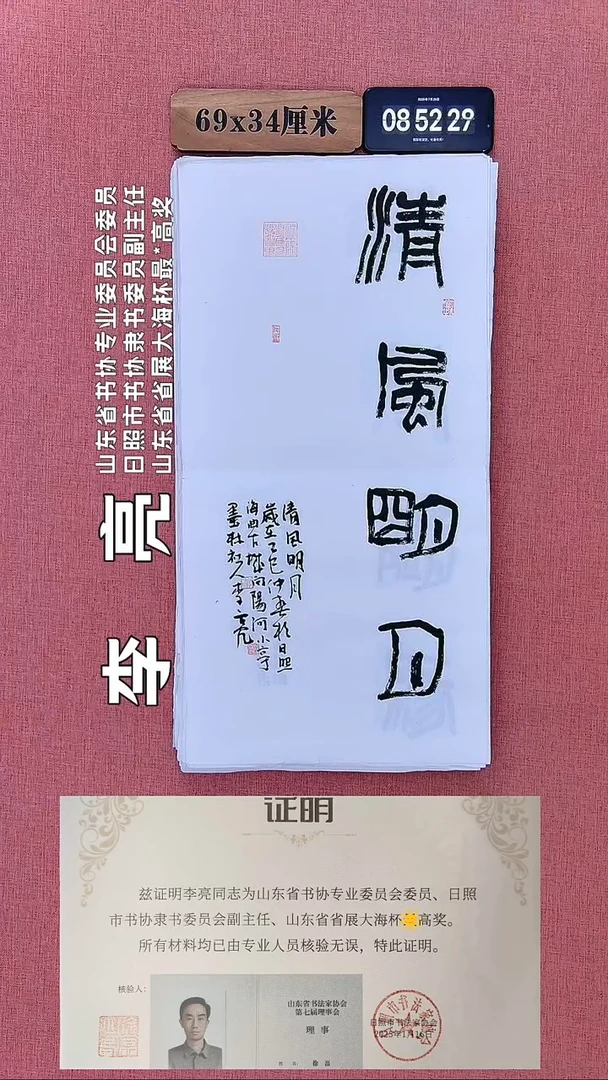 69x34厘米
08 52 29
清風明月
清风明月
岁在乙巳仲春於日照
海曲古城向阳河小亭
墨社主人李亮
山东省书协专业委员会委员
日照市书协隶书委员副主任
山东省省展大海杯最*高奖
李亮
证明
兹证明李亮同志为山东省书协专业委员会委员、日照
市书协隶书委员会副主任、山东省省展大海杯高奖。
所有材料均已由专业人员核验无误，特此证明。
核验人：
山东省书法家协会
第七届理事会
理事
日照市书法家协会
2025年1月16日